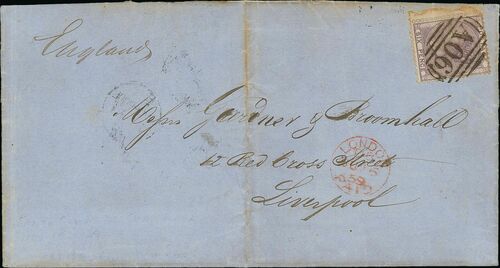 England
A06
Messrs Gardner & Broomhall
LONDON
12 Red Cross Street
59
PAID
Liverpool